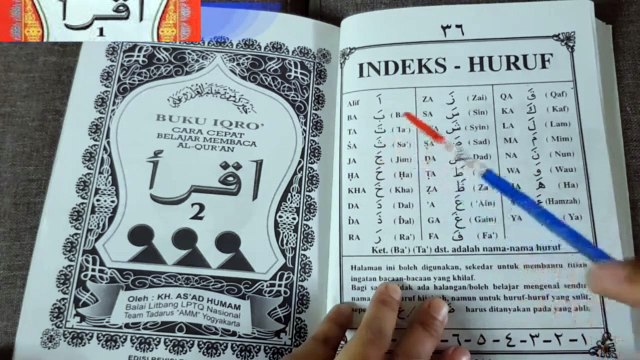 اقرأ
1
BUKU IQRO'
CARA CEPAT
BELAJAR MEMBACA
AL-QUR'AN
اقرأ
2
Oleh : KH. AS'AD HUMAM
Balai Litbang LPTQ Nasional
Team Tadarus "AMM" Yogyakarta
٣٦
INDEKS - HURUF
Alif
BA (Ba
TA (Ta')
SA (Sa')
JA (Jim)
HA (Ha)
KHA (Kha)
DA (Dal)
RA (Ra')
ZA (Zai)
SA (Sin)
(Syin)
SA (Sad)
DA Dad)
ZA (Za
'A ('Ain)
GA (Gain)
FA (Fa')
QA (Qaf)
KA (Kaf)
LA (Lam)
MA (Mim)
NA (Nun)
WA (Wau)
(Ha)
(Hamzah)
YA (Ya)
Ket. (Ba') (Ta') dst. adalah nama-nama huruf
Halaman ini boleh digunakan, sekedar untuk membantu titian
ingatan bacaan-bacaan yang khilaf.
ada halangan/boleh belajar mengenal sendiri
namun untuk huruf-huruf yang sulit,
harus ditanyakan pada yang ahli.
٧ - ٦ - ٥ - ٤ - ٣ - ٢ - ١